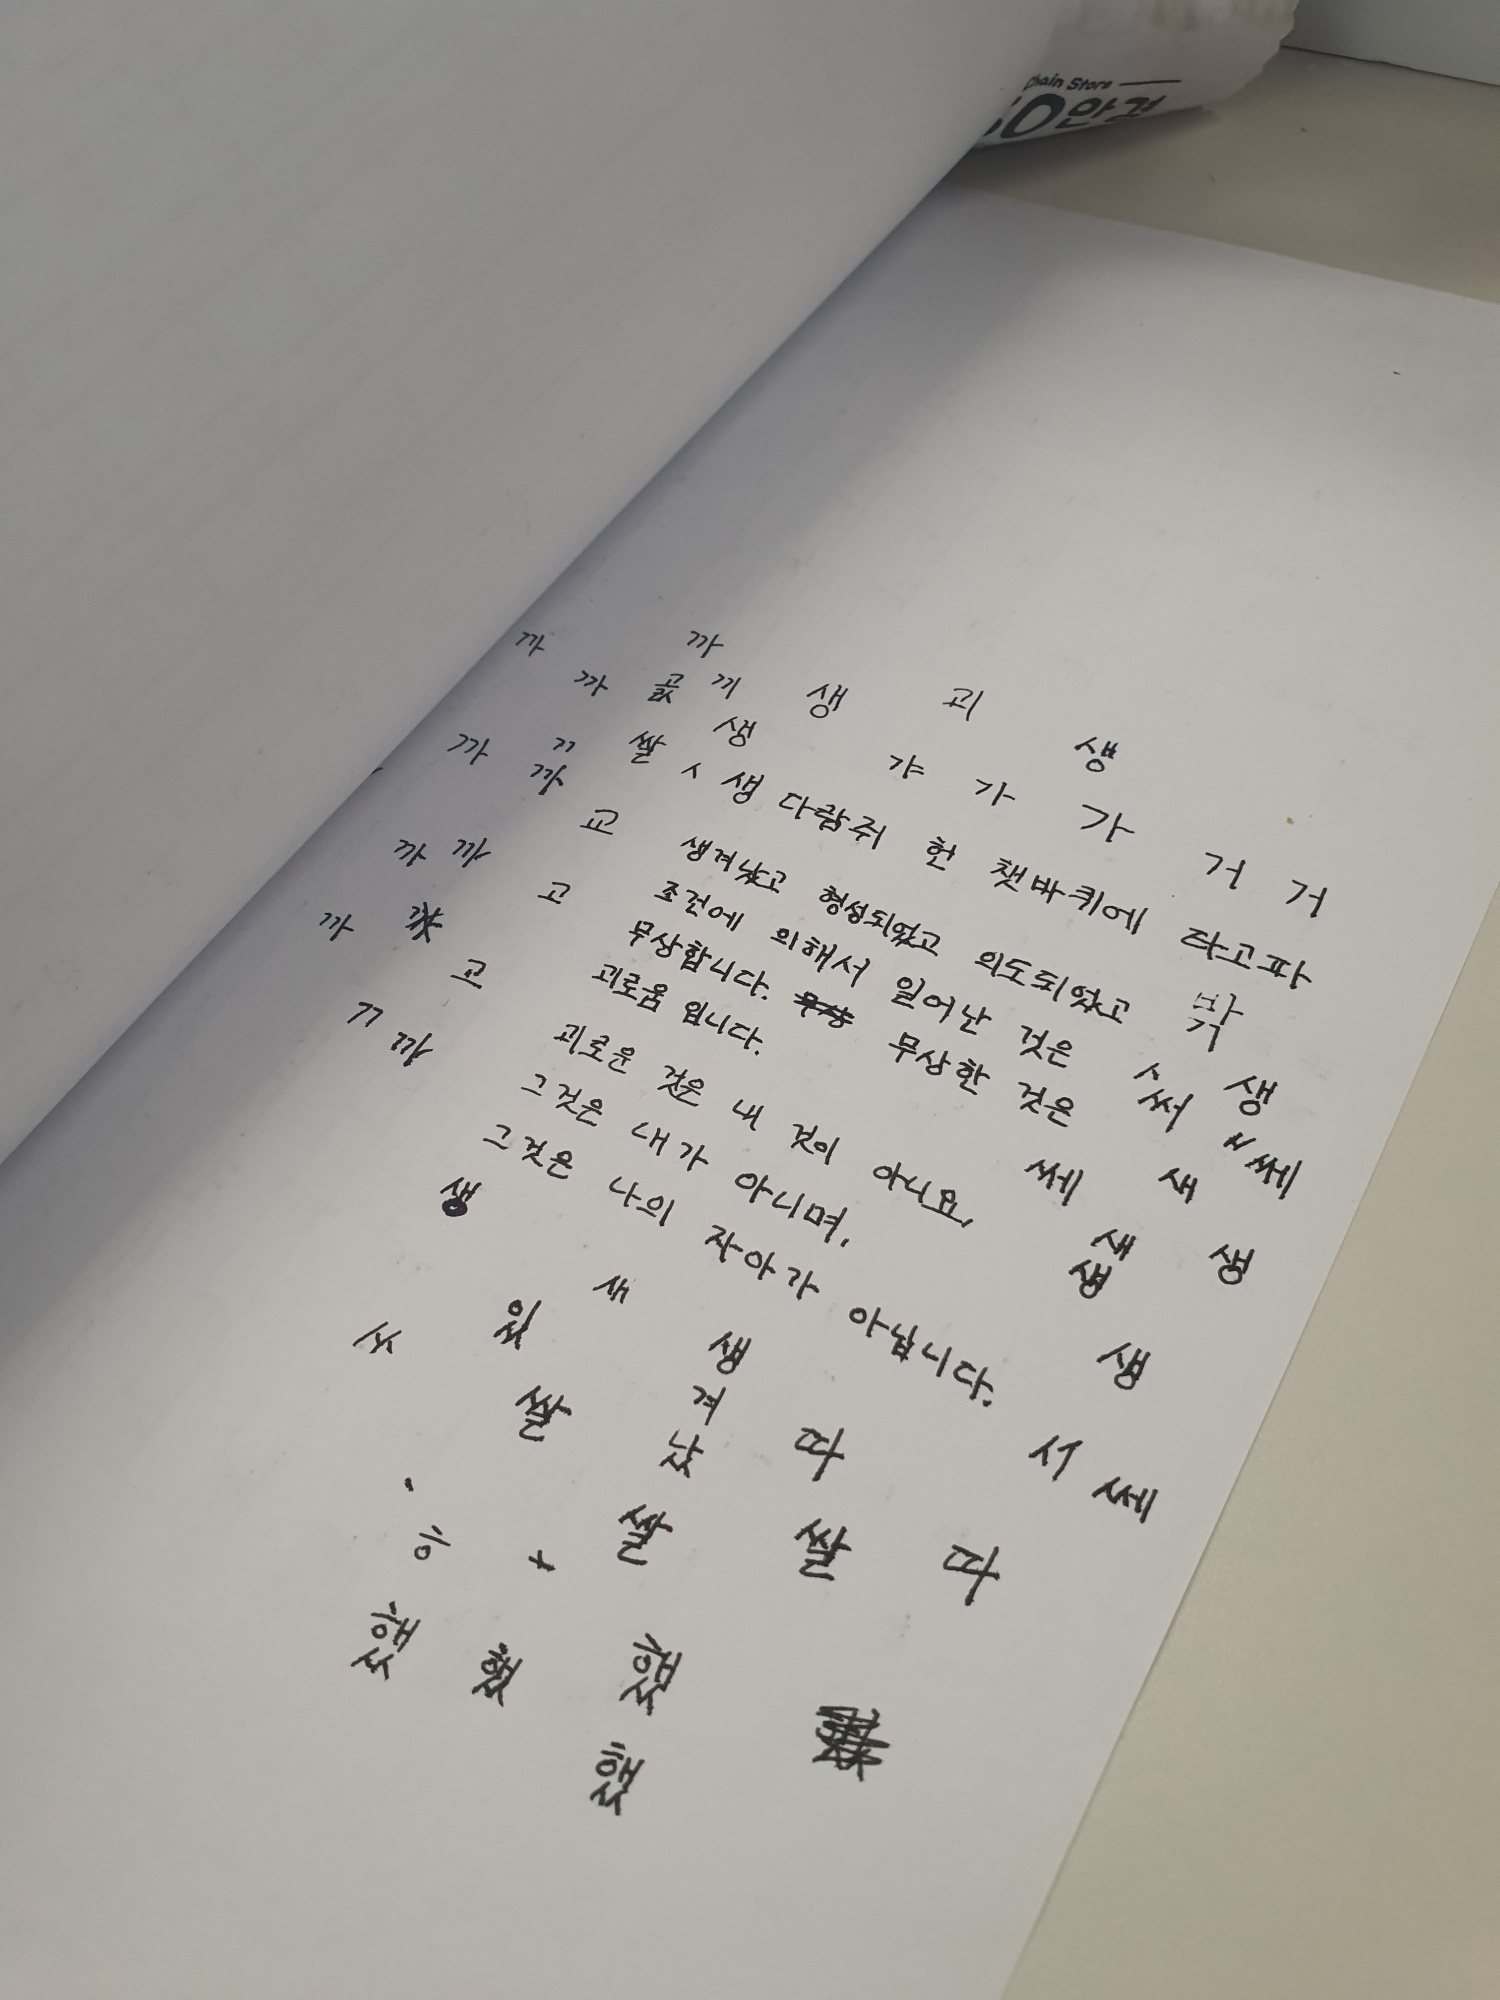 Chain Store
안경
까 까
까 끼 생 괴 생
생
까 ㄲ 쌀 ㅅ 생 다람쥐 헌 쳇바퀴에 타고파
갸 가 가 거 거
까 교 생겨났고 형성되었고 의도되었고 박
까 까 고 조건에 의해서 일어난 것은 ㅅ 생
까 고 무상합니다. 무상한 것은 써 쎄
ㄲ 까 괴로움 입니다.
괴로운 것은 내 것이 아니요, 쎄 새
그것은 내가 아니며, 새 생
그것은 나의 자아가 아닙니다. 생 생
생 새
ㅆ 있 생 서 쎄
쌀 겨 따
났
쌀 쌀 따
ㅎ
했 했 했
했